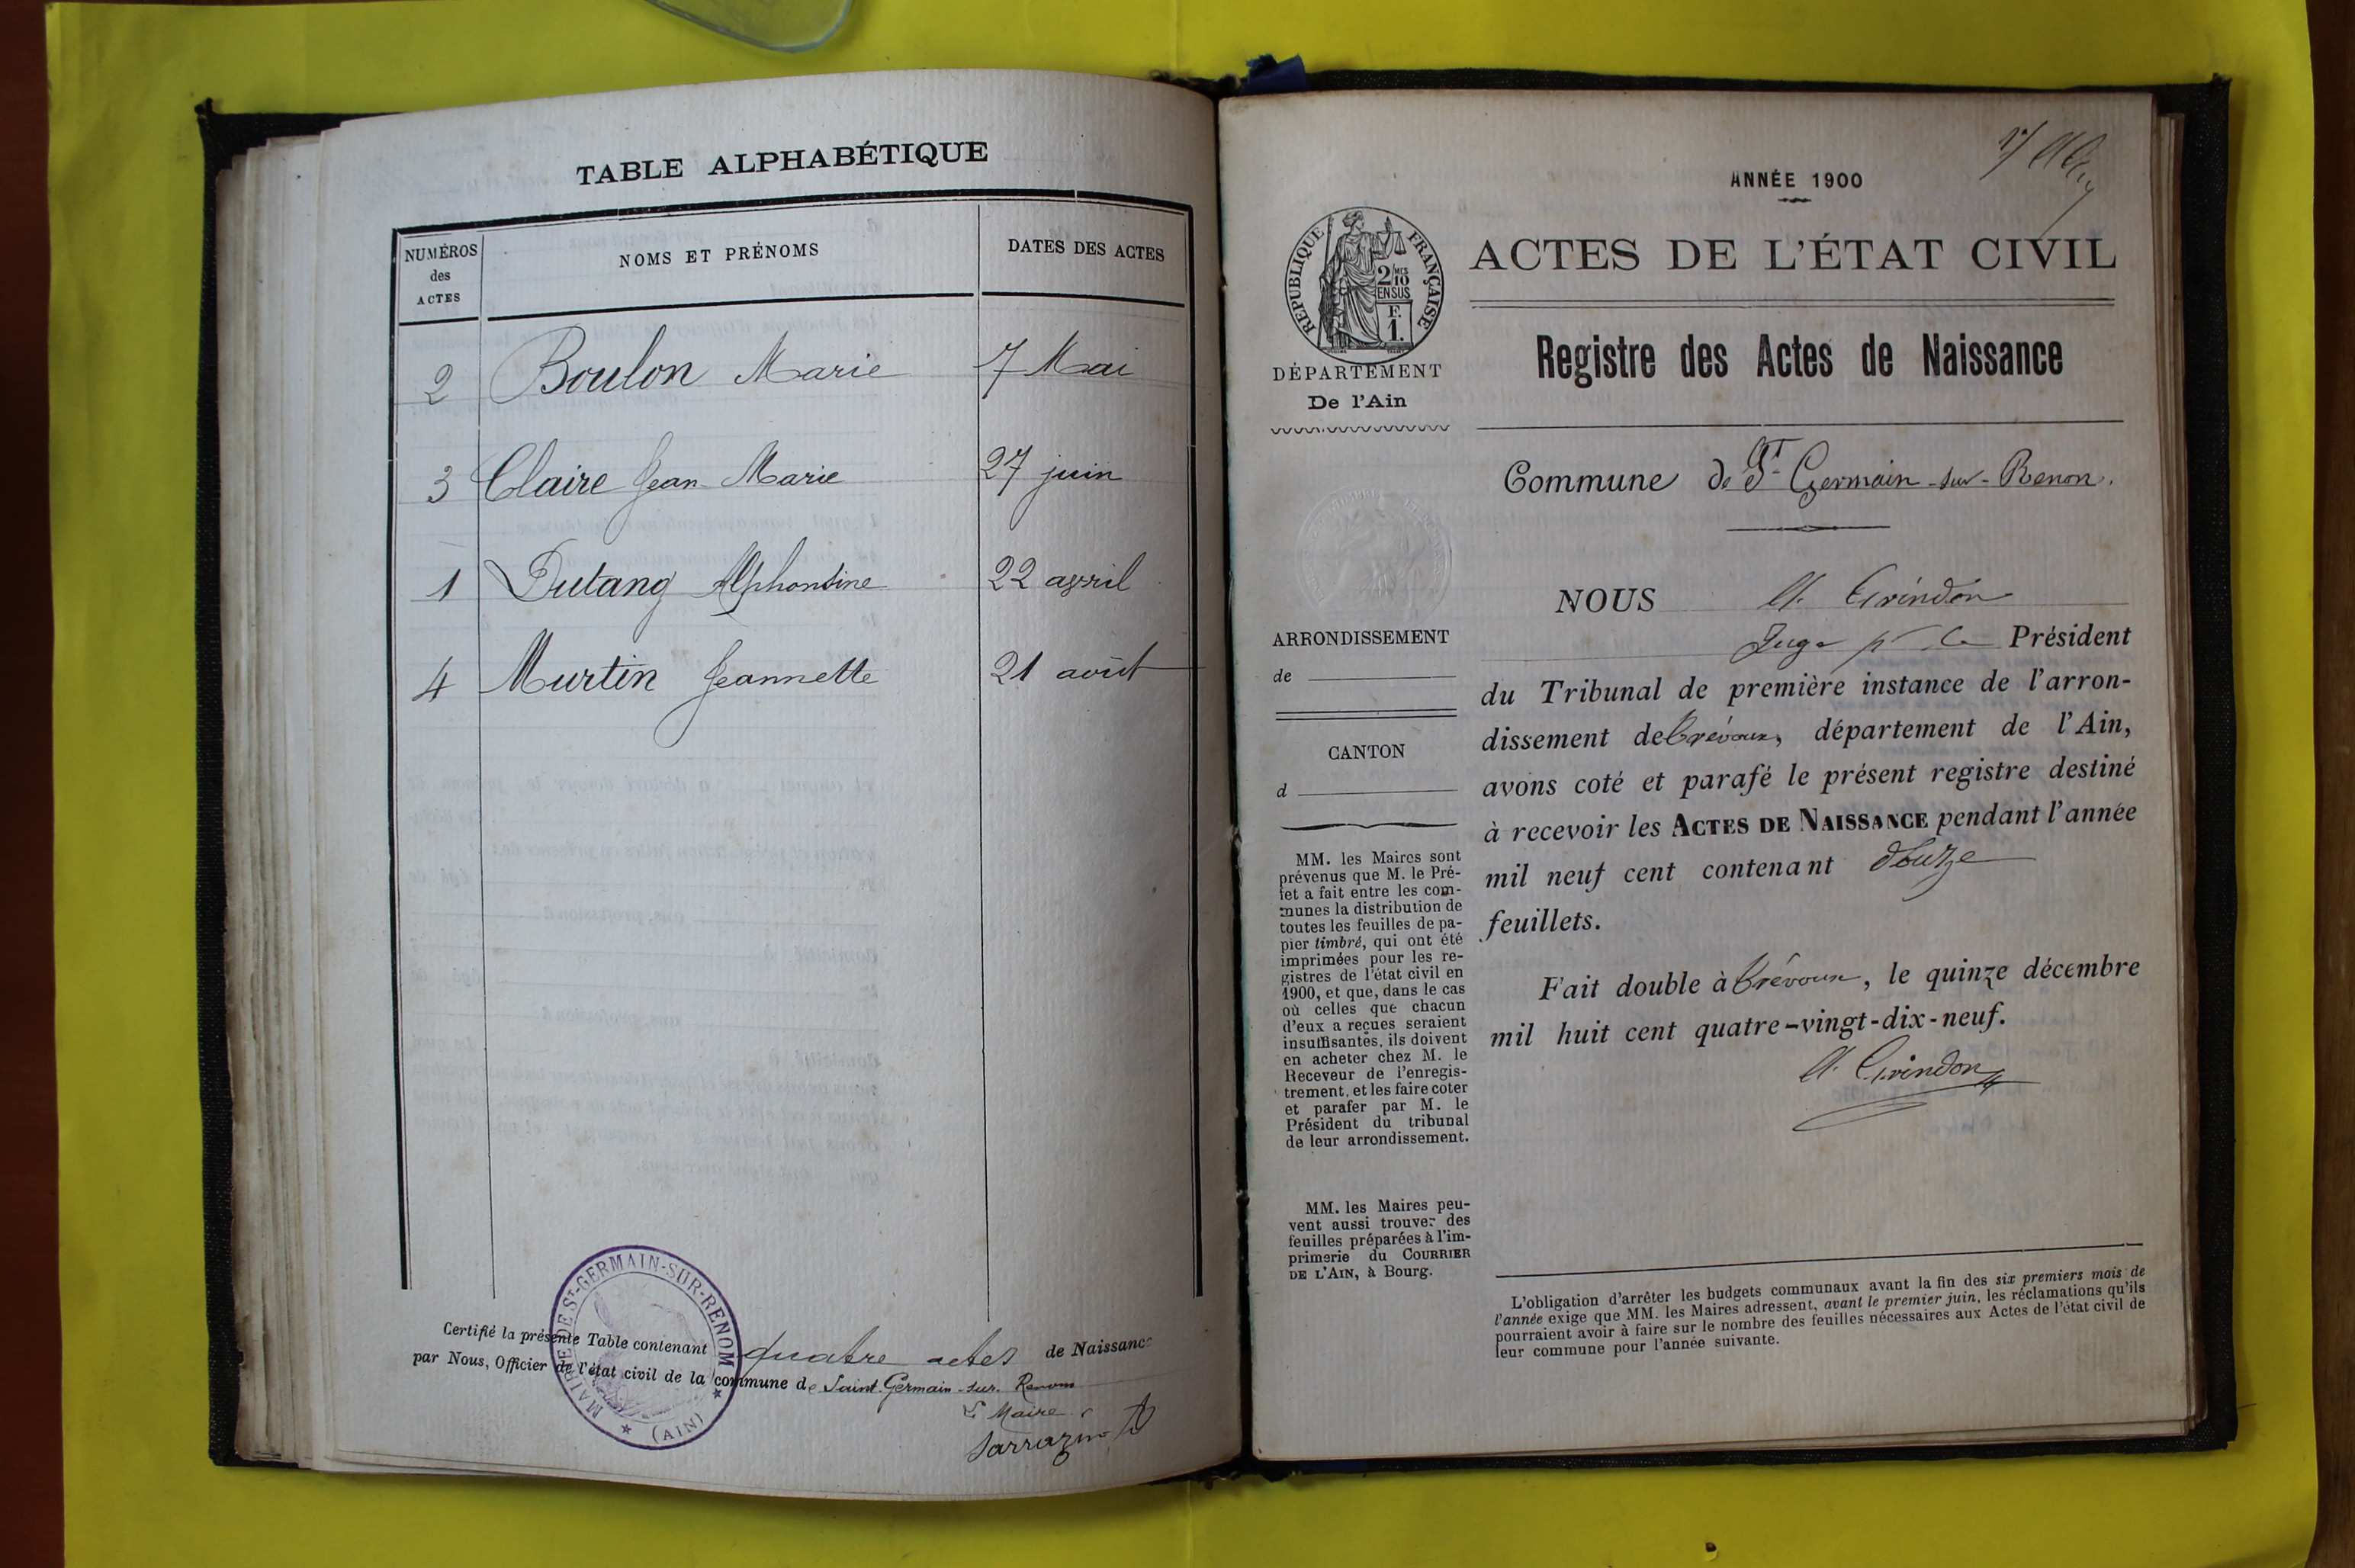 TABLE ALPHABÉTIQUE
NUMÉROS
des
ACTES
NOMS ET PRÉNOMS
DATES DES ACTES
2 Boulon Marie 7 Mai
3 Claire Jean Marie 27 juin
1 Dutang Alphonsine 22 avril
4 Murtin Jeannette 21 août
MAIRIE DE ST-GERMAIN-SUR-RENOM
(AIN)
Certifié la présente Table contenant quatre actes de Naissance
par Nous, Officier de l'état civil de la commune de Saint Germain-sur-Renom
Le Maire
Sarrazin
ANNÉE 1900
RÉPUBLIQUE FRANÇAISE
2/10
EN SUS
F.
1.
ACTES DE L'ÉTAT CIVIL
Registre des Actes de Naissance
DÉPARTEMENT
De l'Ain
Commune de St Germain-sur-Renon.
NOUS A. Grindon
Juge pr le Président
du Tribunal de première instance de l'arron-
dissement de Trévoux, département de l'Ain,
avons coté et parafé le présent registre destiné
à recevoir les ACTES DE NAISSANCE pendant l'année
mil neuf cent contenant douze
feuillets.
Fait double à Trévoux, le quinze décembre
mil huit cent quatre-vingt-dix-neuf.
A. Grindon
ARRONDISSEMENT
de
CANTON
d
MM. les Maires sont
prévenus que M. le Pré-
fet a fait entre les com-
munes la distribution de
toutes les feuilles de pa-
pier timbré, qui ont été
imprimées pour les re-
gistres de l'état civil en
1900, et que, dans le cas
où celles que chacun
d'eux a reçues seraient
insuffisantes, ils doivent
en acheter chez M. le
Receveur de l'enregis-
trement, et les faire coter
et parafer par M. le
Président du tribunal
de leur arrondissement.
MM. les Maires peu-
vent aussi trouver des
feuilles préparées à l'im-
primerie du COURRIER
DE L'AIN, à Bourg.
L'obligation d'arrêter les budgets communaux avant la fin des six premiers mois de
l'année exige que MM. les Maires adressent, avant le premier juin, les réclamations qu'ils
pourraient avoir à faire sur le nombre des feuilles nécessaires aux Actes de l'état civil de
leur commune pour l'année suivante.